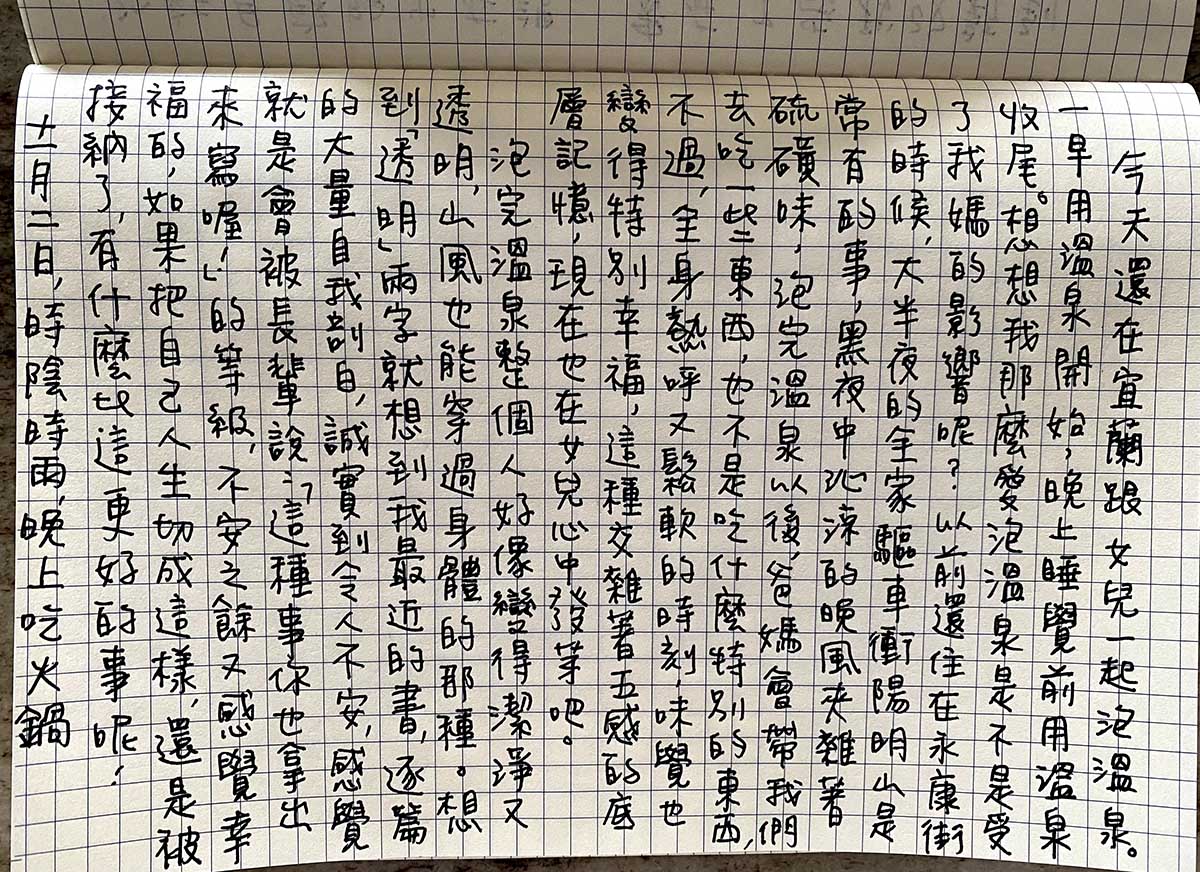 今天還在宜蘭跟女兒一起泡溫泉。
一早用溫泉開始，晚上睡覺前用溫泉
收尾。想想我那麼愛泡溫泉是不是受
了我媽的影響呢？以前還住在永康街
的時候，大半夜的全家驅車衝陽明山是
常有的事，黑夜中沁涼的晚風夾雜著
硫磺味，泡完溫泉以後，爸媽會帶我們
去吃一些東西，也不是吃什麼特別的東西，
不過，全身熱呼又鬆軟的時刻，味覺也
變得特別幸福，這種交雜著五感的底
層記憶，現在也在女兒心中發芽吧。
泡完溫泉整個人好像變得潔淨又
透明，山風也能穿過身體的那種。想
到「透明」兩字就想到我最近的書，逐篇
的大量自我剖白，誠實到令人不安，感覺
就是會被長輩說：「這種事你也拿出
來寫喔！」的等級，不安之餘又感覺幸
福的，如果把自己人生切成這樣，還是被
接納了，有什麼比這更好的事呢！
十一月二日，時陰時雨，晚上吃火鍋